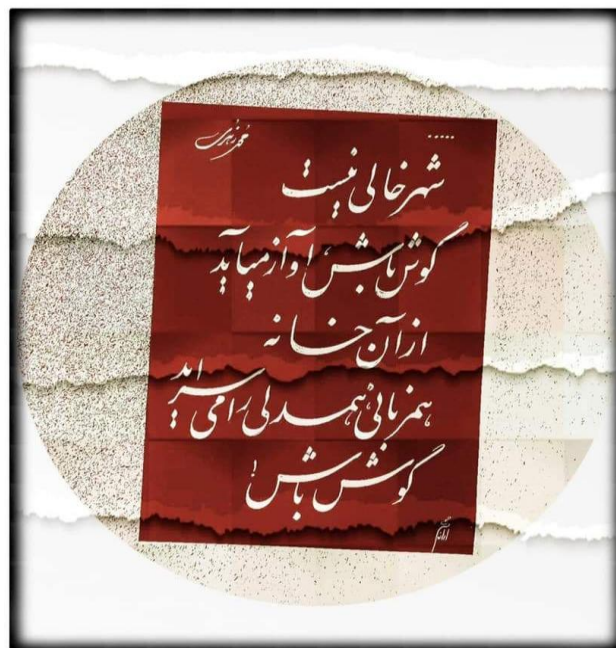 .....
شهر خالی نیست
گوش باش، آواز میآید
از آن خانه
همزبانی همدلی را می سراید
گوش باش!